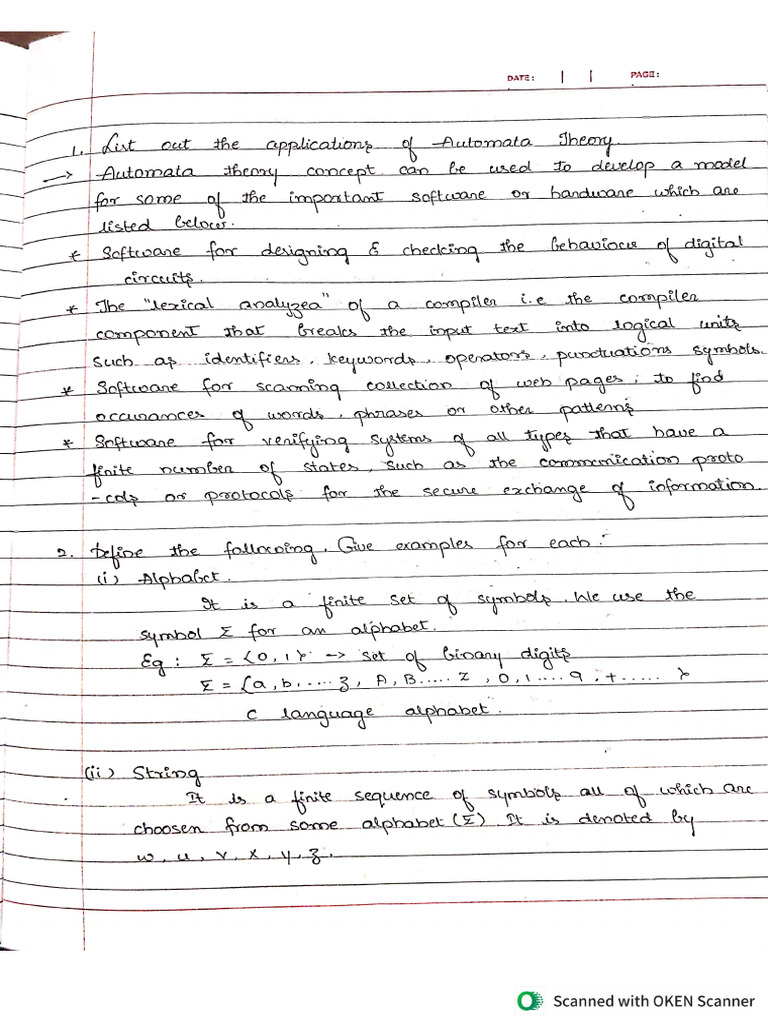 DATE: | | PAGE:
1. List out the applications of Automata Theory.
→ Automata theory concept can be used to develop a model
for some of the important software or hardware which are
listed below.
* Software for designing & checking the behaviour of digital
circuits.
* The "lexical analyzea" of a compiler i.e the compiler
component that breaks the input text into logical units
such as identifiers, keywords, operators, punctuations symbols.
* Software for scanning collection of web pages; to find
occurances of words, phrases or other patterns
* Software for verifying systems of all types that have a
finite number of states, such as the communication proto
-cols or protocols for the secure exchange of information.
2. Define the following. Give examples for each:-
(i) Alphabet.
It is a finite set of symbols. We use the
symbol Σ for an alphabet.
Eg: Σ = {0, 1} -> set of binary digits
Σ = {a, b, ..... z, A, B..... Z, 0, 1 .... 9, + ...... }
C language alphabet.
(ii) String
It is a finite sequence of symbols all of which are
choosen from some alphabet (Σ) It is denoted by
w, u, v, x, y, z.
Scanned with OKEN Scanner